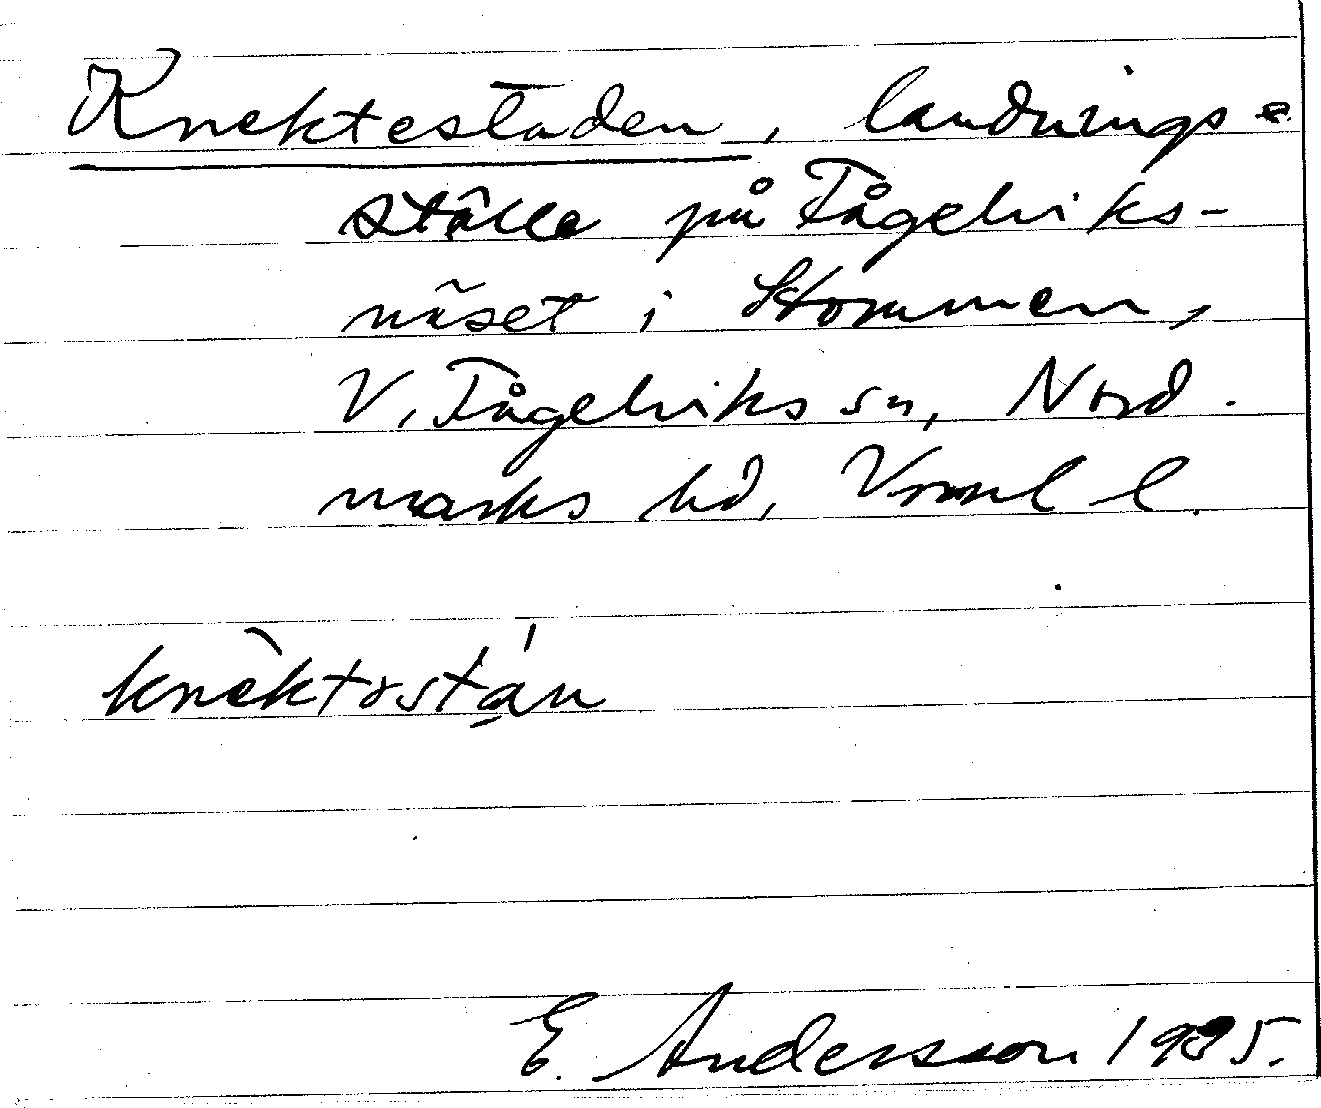 Knektestaden, landnings-
ställe på Fågelviks-
näset i Stommen,
V. Fågelviks sn, Nord-
marks hd, Vrml l.
knèktostán
E. Andersson 1985.